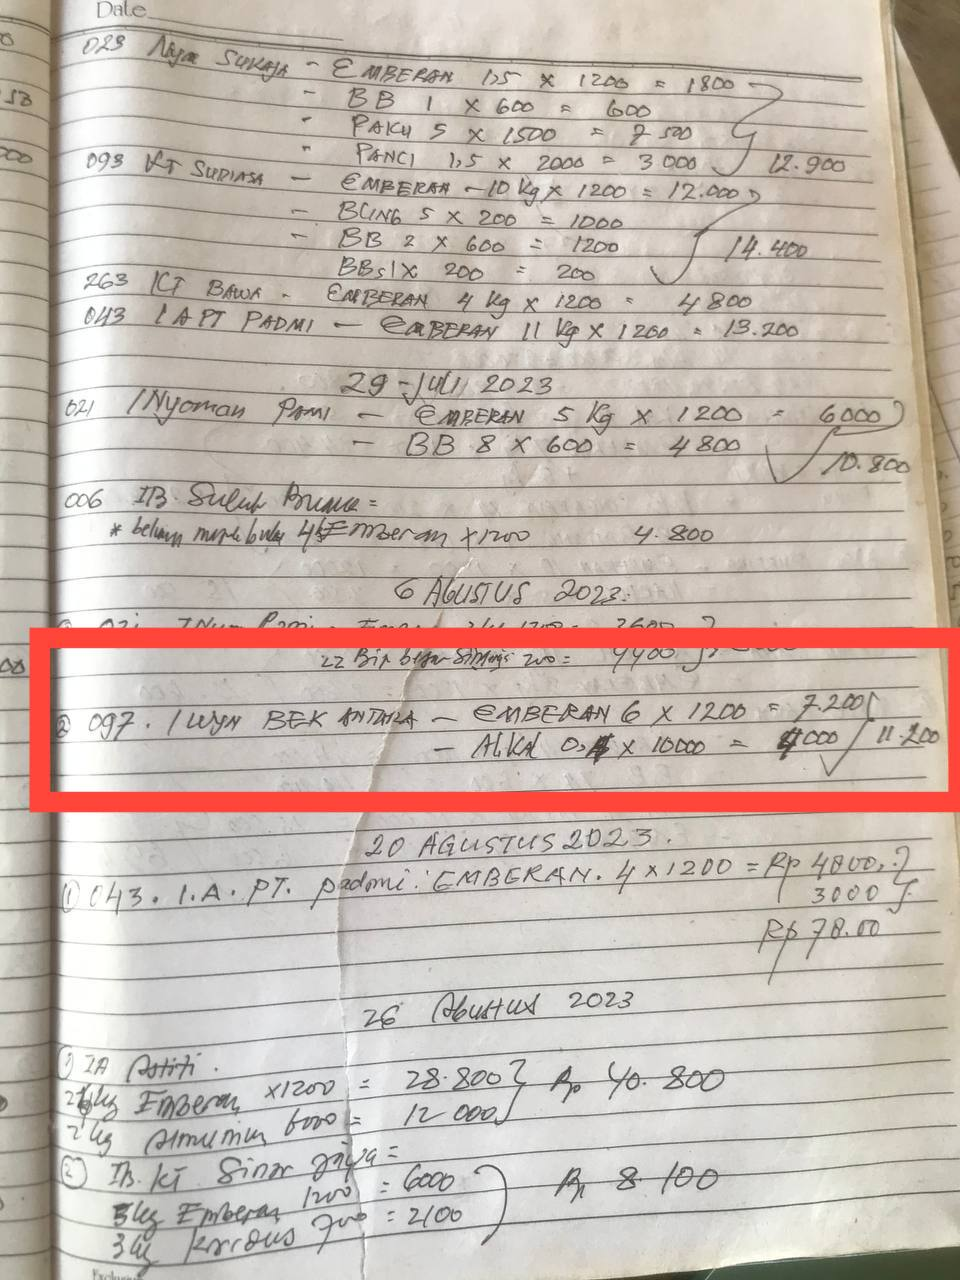 Date
029 Nym SUKAJA - EMBERAN 1,5 x 1200 = 1800
- BB 1 x 600 = 600
" PAKU 5 x 1500 = 7500
" PANCI 1,5 x 2000 = 3000 12.900
093 KT SUDIASA - EMBERAN - 10 Kg x 1200 = 12.000
- BLING 5 x 200 = 1000
- BB 2 x 600 = 1200 14.400
BBs 1 x 200 = 200
263 KT BAWA - EMBERAN 4 Kg x 1200 = 4800
043 I A PT PADMI - EMBERAN 11 Kg x 1200 = 13.200
29 - JULI 2023
021 I Nyoman PAMI - EMBERAN 5 Kg x 1200 = 6000
- BB 8 x 600 = 4800
10.800
006 IB. =
* 4 Emberan x 1200 4.800
6 AGUSTUS 2023
22 200 = 4400
② 097. I WYN BEK ANTARA - EMBERAN 6 x 1200 = 7.200
- 0,4 x 10000 = 4000 11.200
20 AGUSTUS 2023.
① 043. I.A. PT. padmi: EMBERAN. 4 x 1200 = Rp 4800,
3000
Rp 78.00
26 Agustus 2023
① IA Astiti.
24 kg Emberan x1200 = 28.800 Rp 40.800
2 kg Almunium 6000 = 12 000
② IB. KT Sinar jaya =
5 kg Emberan 1200 = 6000 Rp 8100
3 kg Kardus 700 = 2100